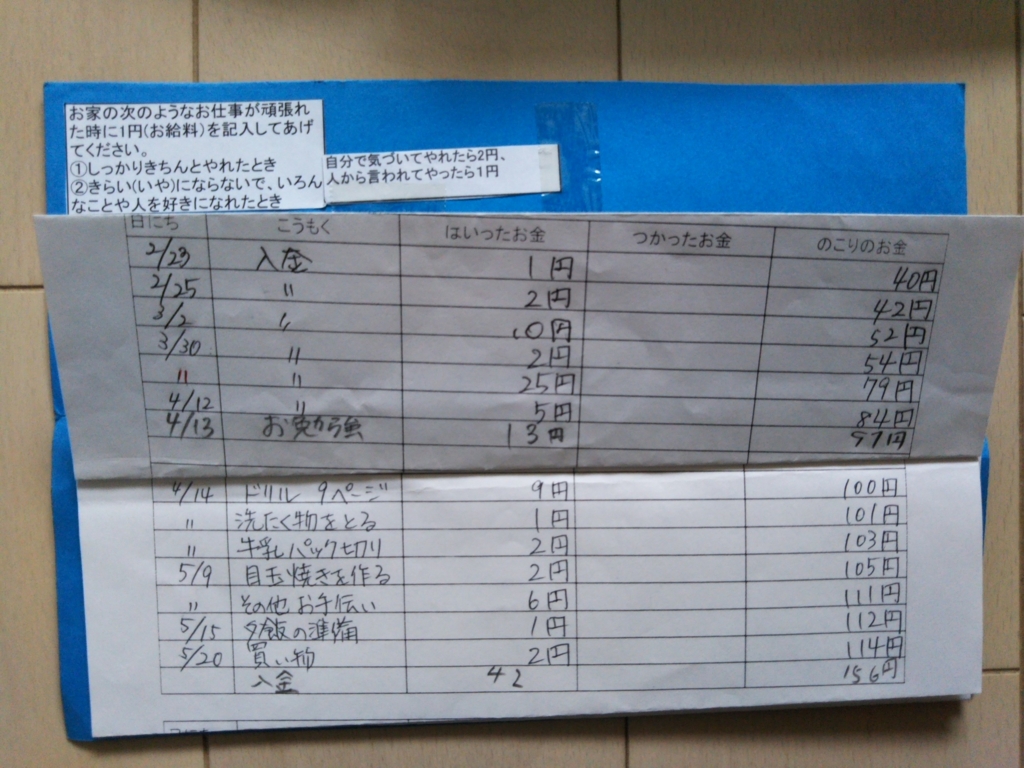 お家の次のようなお仕事が頑張れ
た時に1円(お給料)を記入してあげ
てください。
①しっかりきちんとやれたとき
②きらい(いや)にならないで、いろん
なことや人を好きになれたとき
自分で気づいてやれたら2円、
人から言われてやったら1円
日にち こうもく はいったお金 つかったお金 のこりのお金
2/23 入金 1円 40円
2/25 〃 2円 42円
3/2 〃 10円 52円
3/30 〃 2円 54円
〃 〃 25円 79円
4/12 〃 5円 84円
4/13 お勉強 13円 97円
4/14 ドリル 9ページ 9円 100円
〃 洗たく物をとる 1円 101円
〃 牛乳パック切り 2円 103円
5/9 目玉焼きを作る 2円 105円
〃 その他お手伝い 6円 111円
5/15 夕飯の準備 1円 112円
5/20 買い物 2円 114円
入金 42 156円